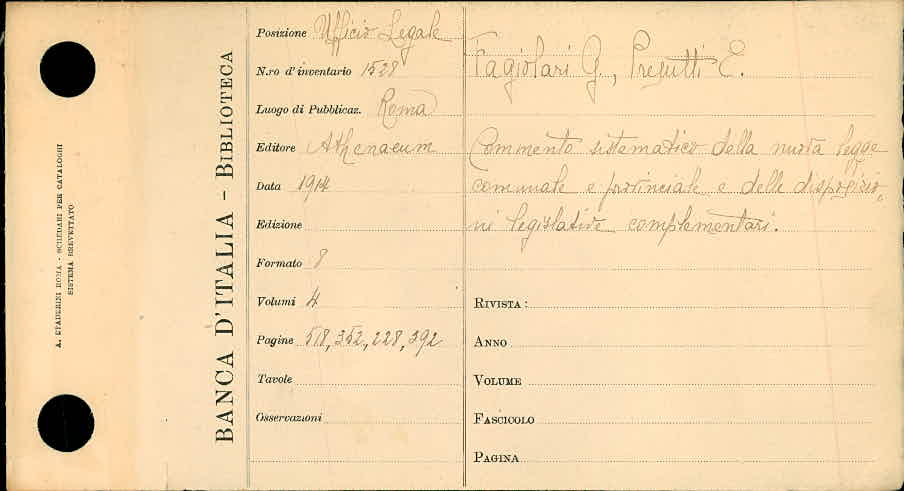 A. STADERINI ROMA - SCHEDARI PER CATALOGHI
SISTEMA BREVETTATO
BANCA D'ITALIA - BIBLIOTECA
Posizione Ufficio Legale
N.ro d'inventario 1528
Luogo di Pubblicaz. Roma
Editore Athenaeum
Data 1914
Edizione
Formato 8
Volumi 4
Pagine 518, 352, 228, 392
Tavole
Osservazioni
Fagiolari G., Presutti E.
Commento sistematico della nuova legge
comunale e provinciale e delle disposizio„
ni legislative complementari.
RIVISTA:
ANNO
VOLUME
FASCICOLO
PAGINA